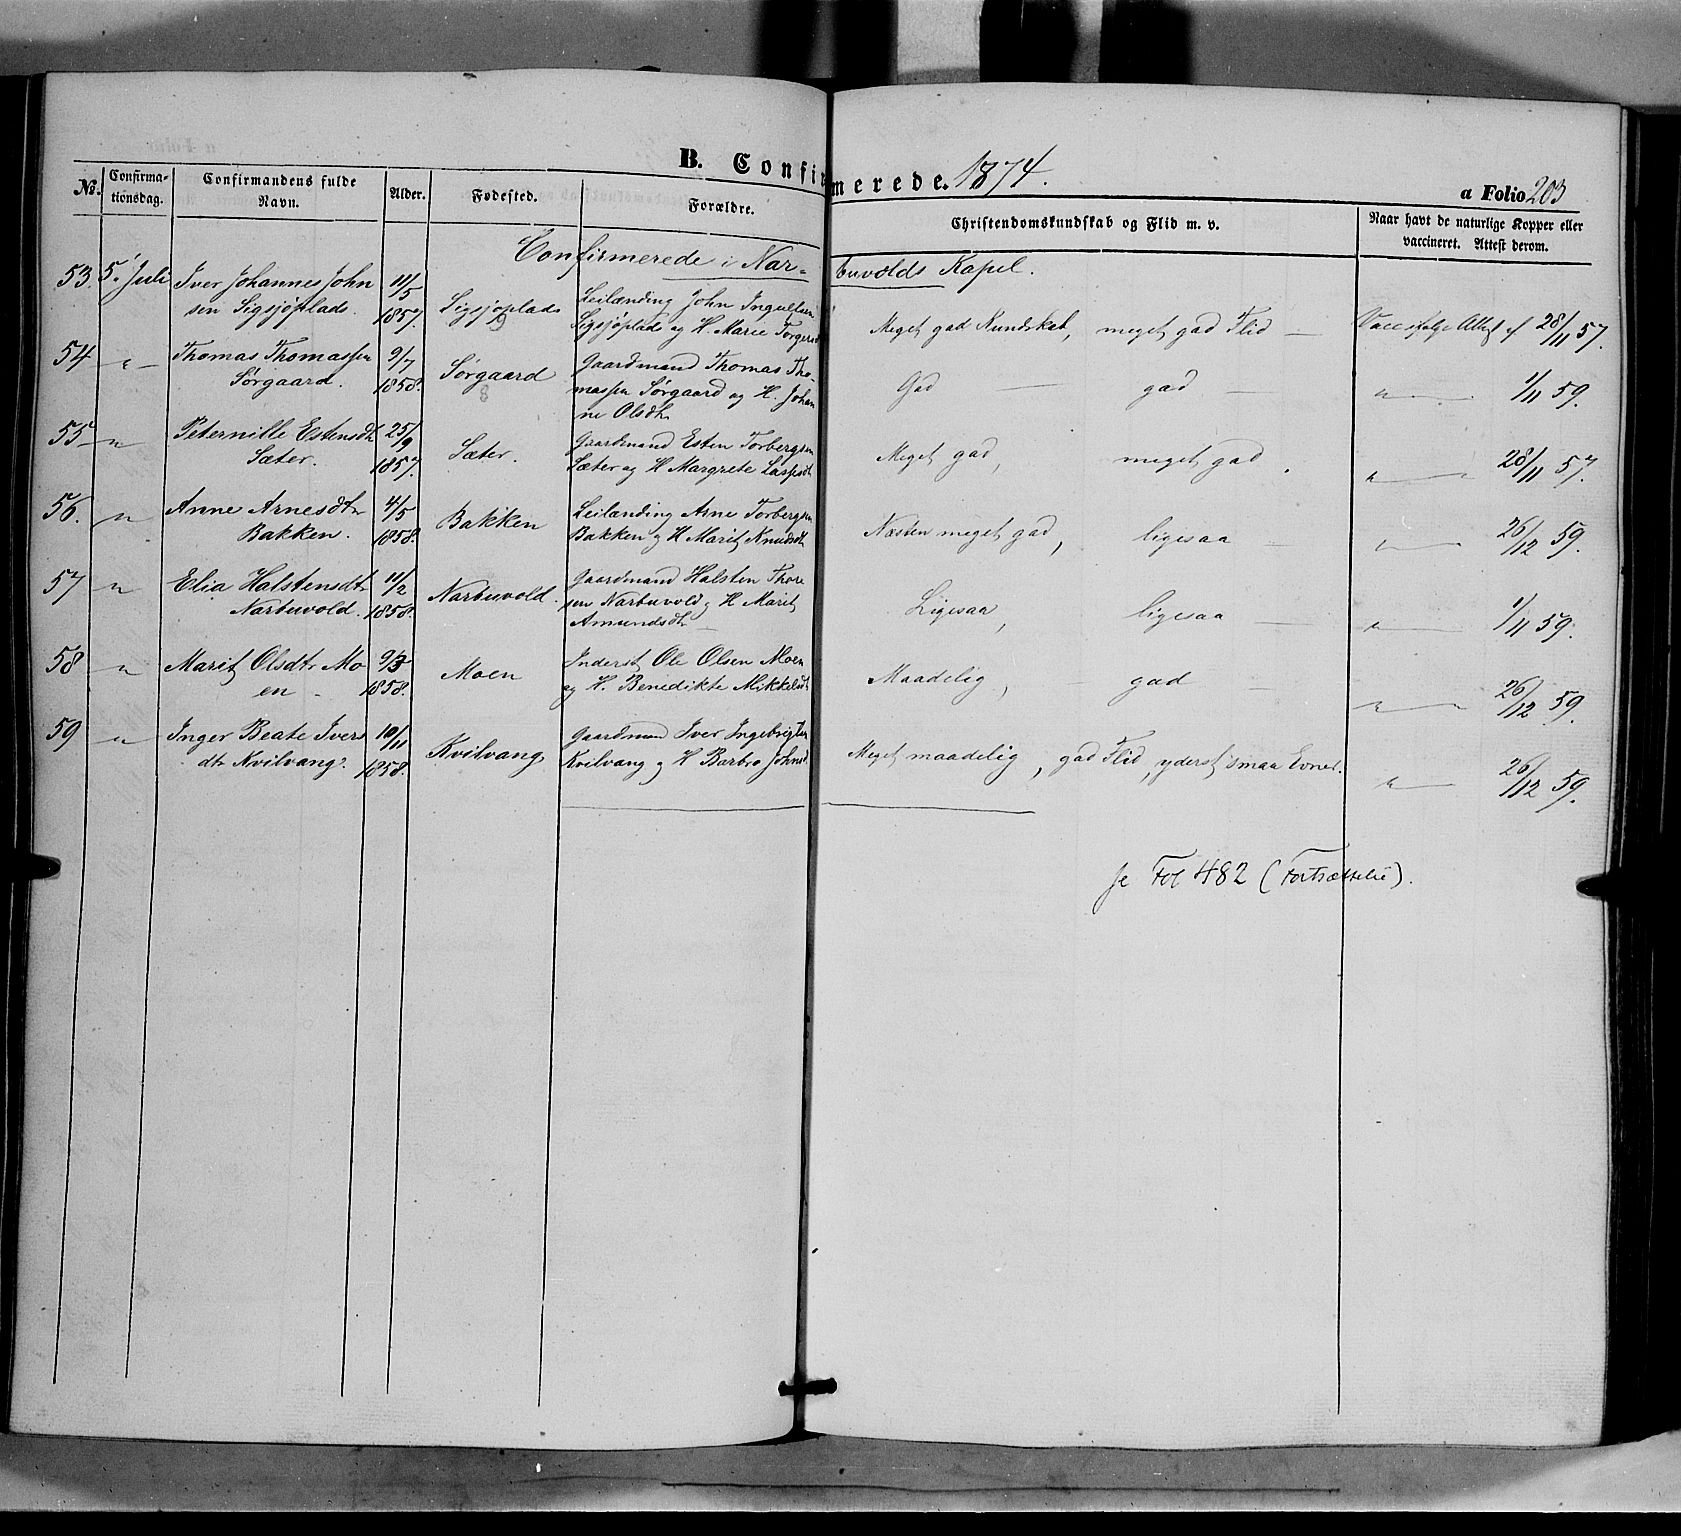 B. Confirmerede. 1874.
a Folio 203
No.
Confirma-
tionsdag.
Confirmandens fulde
Navn.
Alder.
Fødested.
Forældre.
Christendomskundskab og Flid m. v.
Naar havt de naturlige Kopper eller
vaccineret. Attest derom.
Confirmerede i Nar-buvolds Kapel.
53. 5. Juli Iver Johannes John 11/5 Leilænding John Ingulsen
sen Sigsjøplads. 1857. Sigsjøplads Sigsjøplads og H. Marie Torgersd Meget god Kundskab, meget god Flid — Vacc ifølge Attest af 28/11 57.
54 " Thomas Thomassen 9/7 Gaardmand Thomas Tho-
Sørgaard. 1858. Sørgaard massen Sørgaard og H. Johan God — god — " 1/11 59.
ne Olsdtr
55 " Peternille Estensdtr 25/9 Gaardmand Esten Torbergsen
Sæter. 1857. Sæter. Sæter og H Margrete Laspsdt Meget god, meget god. " 28/11 57.
56. " Anne Arnesdtr 4/5 Leilænding Arne Torbergsen
Bakken. 1858. Bakken Bakken og H Marit Knudsdtr Næsten meget god, ligesaa — " 26/12 59.
57 " Elia Halstensdtr 11/2 Gaardmand Halsten Thore
Narbuvold. 1858. Narbuvold. sen Narbuvold og H Marit Ligesaa, ligesaa — " 1/11 59.
Amundsdtr
58 " Marit Olsdtr Mo 9/3 Inderst Ole Olsen Moen
en 1858. Moen og H. Benedikte Mikkelsdt Maadelig, god — " 26/12 59.
59 " Inger Beate Ivers 10/11 Gaardmand Iver Ingebrigtsen
dtr Kvilvang. 1858. Kvilvang Kvilvang og H Barbro Johnsd Meget maadelig, god Flid, yderst smaa Evner. " 26/12 59.
se Fol 482 (Fortsættelse).